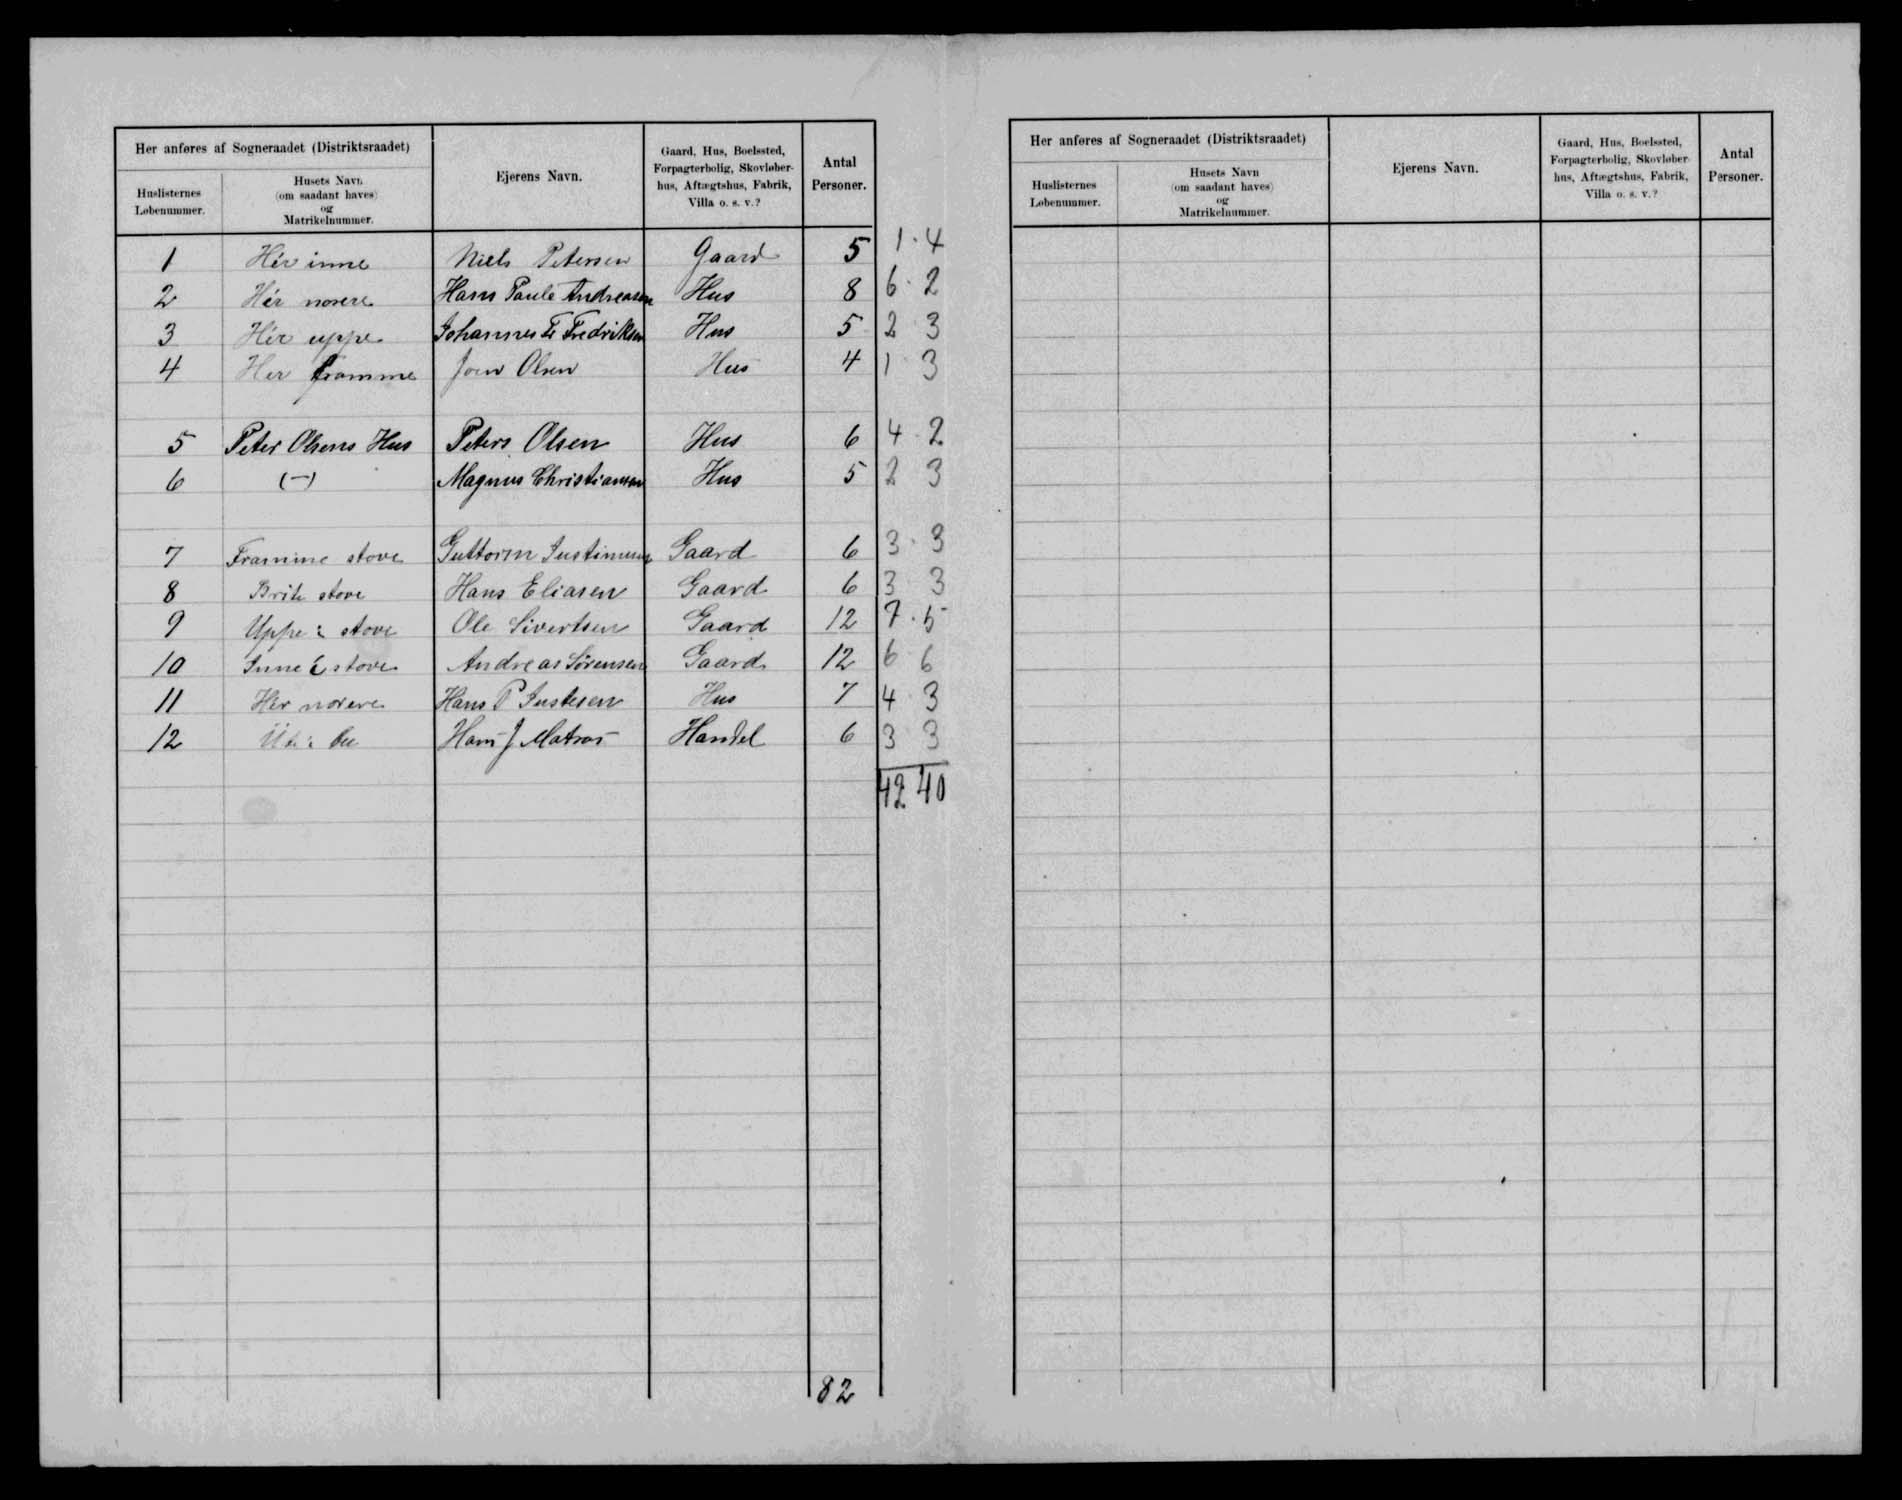 Her anføres af Sogneraadet (Distriktsraadet)
Huslisternes Løbenummer.
Husets Navn (om saadant haves) og Matrikelnummer.
Ejerens Navn.
Gaard, Hus, Boelssted, Forpagterbolig, Skovløberhus, Aftægtshus, Fabrik, Villa o. s. v.?
Antal Personer.
1 Hér inne Niels Petersen Gaard 5 1 · 4
2 Hér norere Hans Paule Andreasen Hus 8 6 · 2
3 Hér uppe Johannes Fr Fredriksen Hus 5 2 3
4 Her framme Joen Olsen Hus 4 1 3
5 Peter Olsens Hus Peters Olsen Hus 6 4 · 2
6 (-) Magnus Christiansen Hus 5 2 3
7 Framme stove Guttorm Justinusen Gaard 6 3 · 3
8 stove Hans Eliasen Gaard 6 3 3
9 Uppe i stove Ole Sivertsen Gaard 12 7 · 5
10 Inne í stove Andreas Sörensen Gaard 12 6 6
11 Hér norere Hans P Justesen Hus 7 4 · 3
12 Hans J Matras Handel 6 3 3
42 40
82
Her anføres af Sogneraadet (Distriktsraadet)
Huslisternes Løbenummer.
Husets Navn (om saadant haves) og Matrikelnummer.
Ejerens Navn.
Gaard, Hus, Boelssted, Forpagterbolig, Skovløberhus, Aftægtshus, Fabrik, Villa o. s. v.?
Antal Personer.